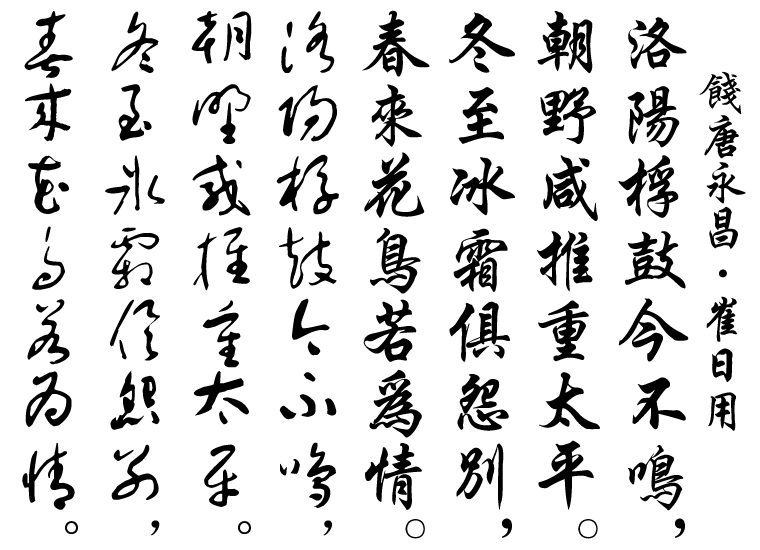 餞唐永昌・崔日用
洛陽桴鼓今不鳴，
朝野咸推重太平。
冬至冰霜俱怨別，
春來花鳥若為情。
洛陽桴鼓今不鳴，
朝野咸推重太平。
冬至冰霜俱怨別，
春來花鳥若為情。